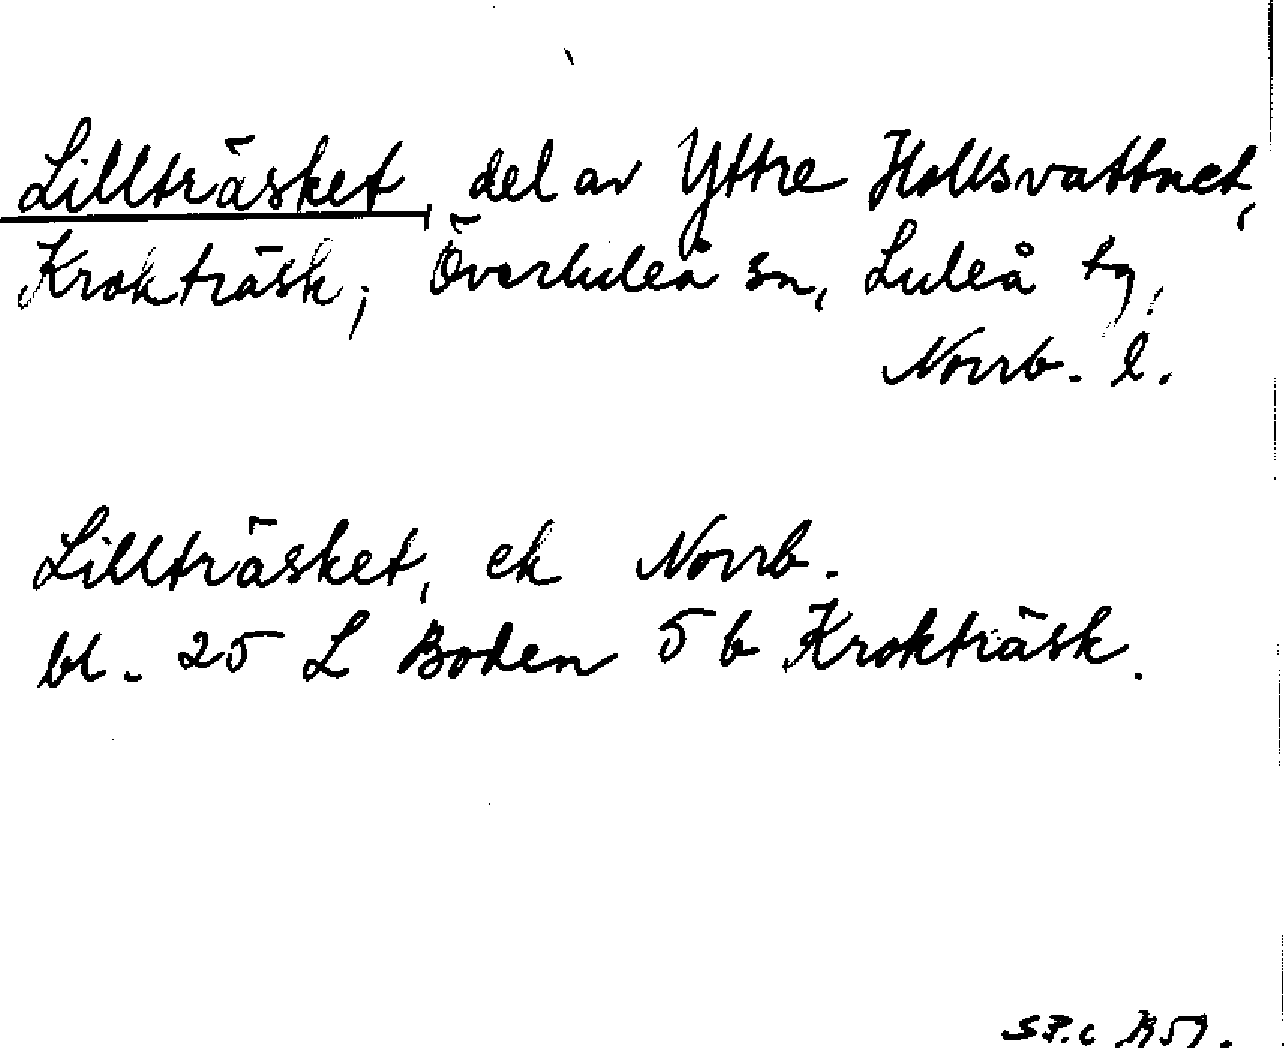 Lillträsket, del av Yttre Hollsvattnet,
Krokträsk, Överluleå sn, Luleå tg,
Norrb. l.
Lillträsket, ek Norrb.
bl. 25 L Boden 5 b Krokträsk.